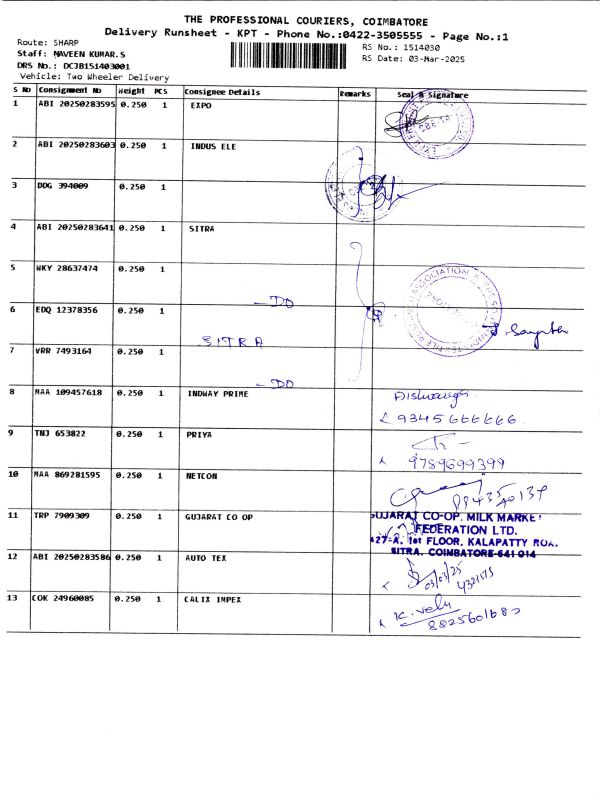 THE PROFESSIONAL COURIERS, COIMBATORE
Delivery Runsheet - KPT - Phone No.:0422-3505555 - Page No.:1
Route: SHARP
Staff: NAVEEN KUMAR.S
RS No.: 1514030
DRS No.: DCJB151403001
RS Date: 03-Mar-2025
Vehicle: Two Wheeler Delivery
S No Consignment No Weight PCS Consignee Details Remarks Seal & Signature
1 ABI 20250283595 0.250 1 EXPO
2 ABI 20250283603 0.250 1 INDUS ELE
3 DDG 394009 0.250 1
4 ABI 20250283641 0.250 1 SITRA
5 WKY 28637474 0.250 1
— DO
6 EDQ 12378356 0.250 1
SITRA
7 VRR 7493164 0.250 1
— DO
8 MAA 109457618 0.250 1 INDWAY PRIME
9345666666
9 TNJ 653822 0.250 1 PRIYA
9789699399
10 MAA 869281595 0.250 1 NETCON
11 TRP 7909309 0.250 1 GUJARAT CO OP
GUJARAT CO-OP. MILK MARKE
FEDERATION LTD.
427-A, 1st FLOOR, KALAPATTY ROA
SITRA, COIMBATORE-641 014
12 ABI 20250283586 0.250 1 AUTO TEX
03/03/25
13 COK 24960085 0.250 1 CALIX IMPEX
K. Velu